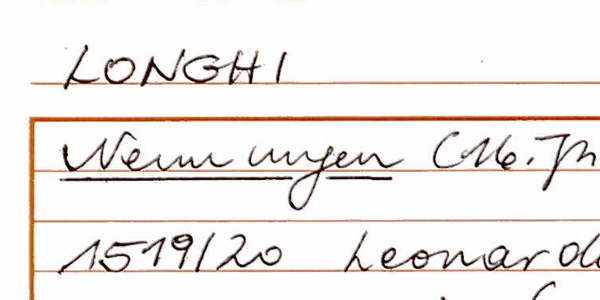 LONGHI
Nennungen (16. Jh
1519/20 Leonardo